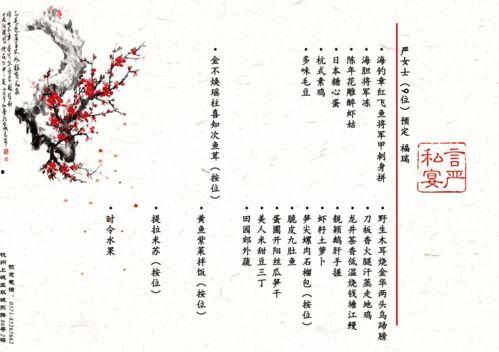 严女士（9位）预定 福瑞
言严
私宴
• 海钓章红飞鱼将军甲刺身拼
• 海胆将军冻
• 陈年花雕醉虾姑
• 日本糖心蛋
• 杭式素鸡
• 多味毛豆
• 金不焕瑶柱喜知次鱼茸（按位）
• 野生木耳烧金华两头乌蹄膀
• 刀板香火腿汗蒸走地鸡
• 龙井茶香低温烧钱塘江鳗
• 靓颖鹅肝手握
• 虾籽土萝卜
• 笋尖螺肉石榴包（按位）
• 脆皮九肚鱼
• 蛋圃开阳丝瓜笋干
• 美人米甜豆三丁
• 田园郊外蔬
• 黄鱼紫菜拌饭（按位）
• 提拉米苏（按位）
• 时令水果